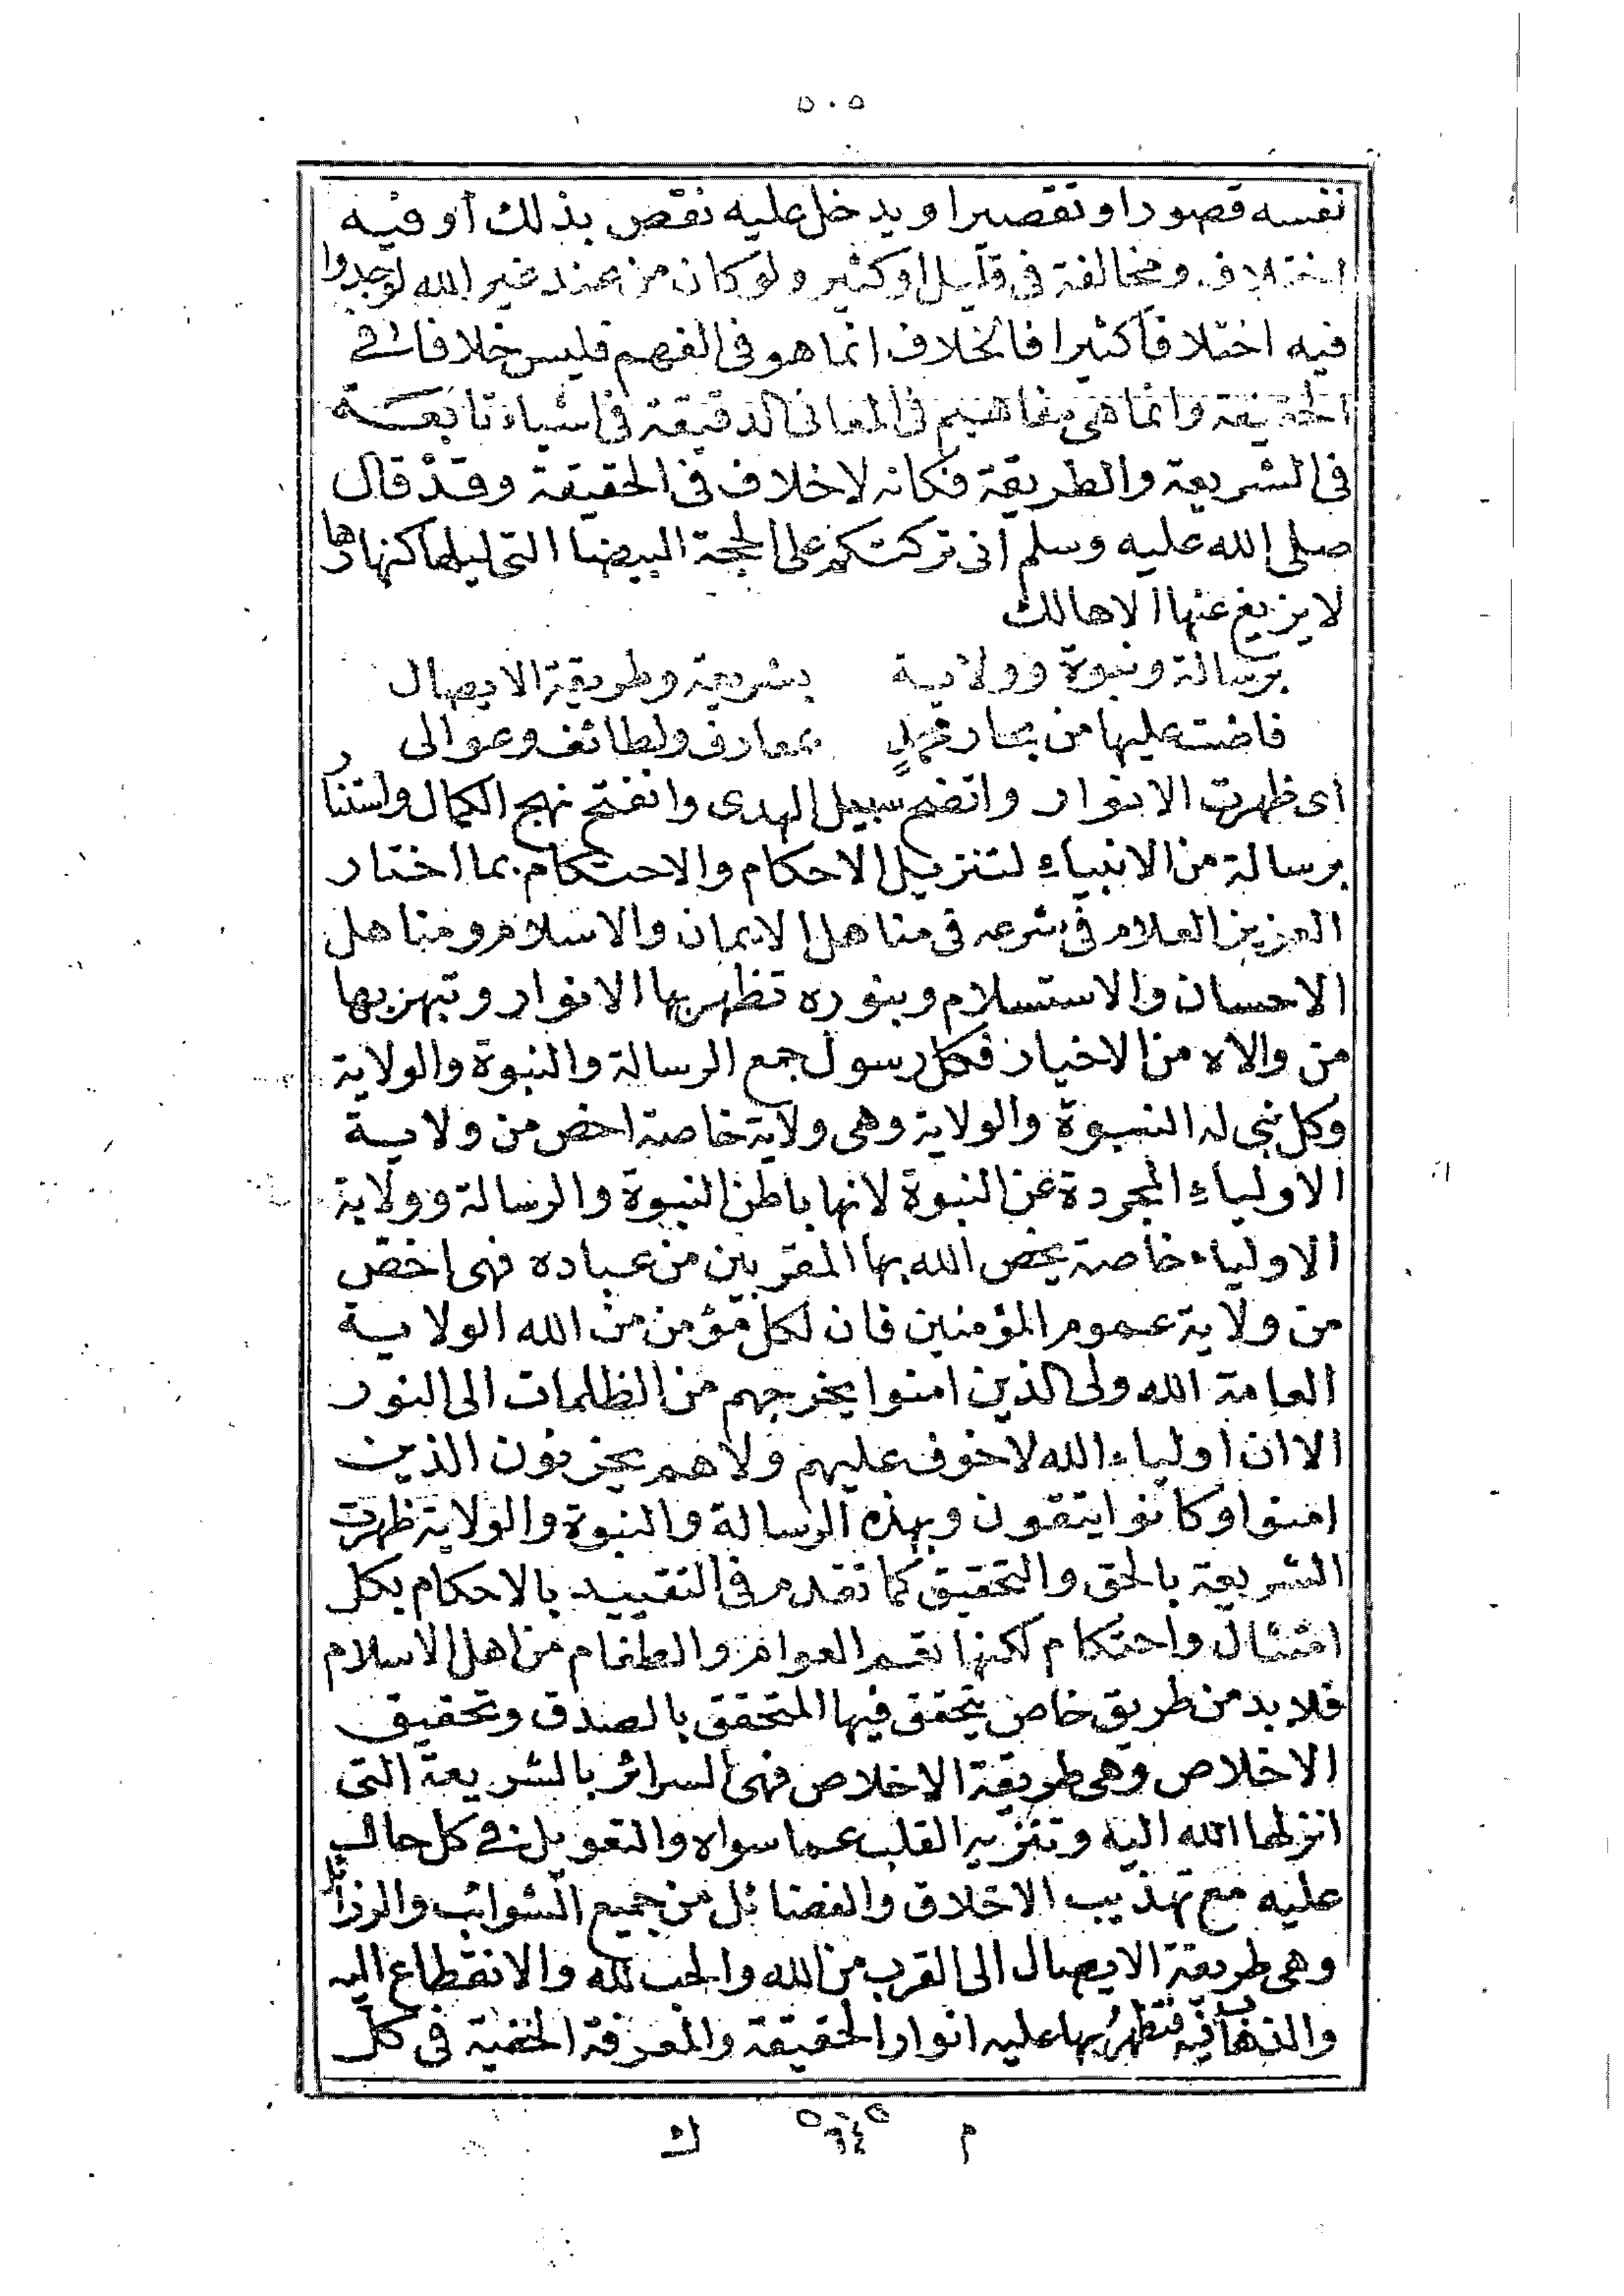 ٥٠٥
نفسه قصورا او تقصيرا ويدخل عليه نقص بذلك أو فيه
اختلاف ومخالفة فى قليل او كثير ولو كان من عند غير الله لوجدوا
فيه اختلافا كثيرا فالخلاف انما هو فى الفهم فليس خلافا فى
الحقيقة وانما هى مفاهيم فى المعانى الدقيقة فى اشياء تابعة
فى الشريعة والطريقة فكانه لا خلاف فى الحقيقة وقد قال
صلى الله عليه وسلم انى تركتكم على المحجة البيضا التى ليلها كنهارها
لا يزيغ عنها الا هالك
برسالة ونبوة وولاية بشريعة وطريقة الايصال
فاضت عليها من بحار محمدٍ بمعارف ولطائف وعوالى
اى ظهرت الانوار واتضح سبيل الهدى وانفتح نهج الكمال واستنار
برسالة من الانبياء لتنزيل الاحكام والاحتكام بما اختار
العزيز العلام فى شرعه فى مناهل الايمان والاسلام ومناهل
الاحسان والاستسلام وبنوره تظهر بها الانوار وتبهز بها
من والاه من الاخيار فكل رسول جمع الرسالة والنبوة والولاية
وكل نبى له النبوة والولاية وهى ولاية خاصة اخص من ولاية
الاولياء المجردة عن النبوة لانها باطن النبوة والرسالة وولاية
الاولياء خاصة يخص الله بها المقربين من عباده فهى اخص
من ولاية عموم المؤمنين فان لكل مؤمن من الله الولاية
العامة الله ولى الذين امنوا يخرجهم من الظلمات الى النور
الا ان اولياء الله لا خوف عليهم ولا هم يحزنون الذين
امنوا وكانوا يتقون وبهذه الرسالة والنبوة والولاية ظهرت
الشريعة بالحق والتحقيق كما تقدم فى التقييد بالاحكام بكل
امتثال واحتكام لكنها تعم العوام والطغام من اهل الاسلام
فلا بد من طريق خاص يتحقق فيها المتحقق بالصدق وتحقيق
الاخلاص وهى طريقة الاخلاص فهى السرائر بالشريعة التى
انزلها الله اليه وتنزيه القلب عما سواه والتعويل فى كل حال
عليه مع تهذيب الاخلاق والفضائل من جميع الشوائب والرذائل
وهى طريقة الايصال الى القرب من الله والحب لله والانقطاع اليه
والذهاب فيه فتظهر بها عليه انوار الحقيقة والمعرفة الحقية فى كل
م ٦٤ ك